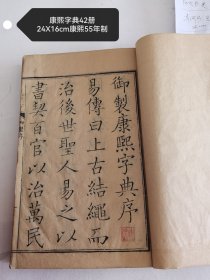 康熙字典42册
24X16cm康熙55年制
御製康熙字典序
易傳曰上古結繩而
治後世聖人易之以
書契百官以治萬民